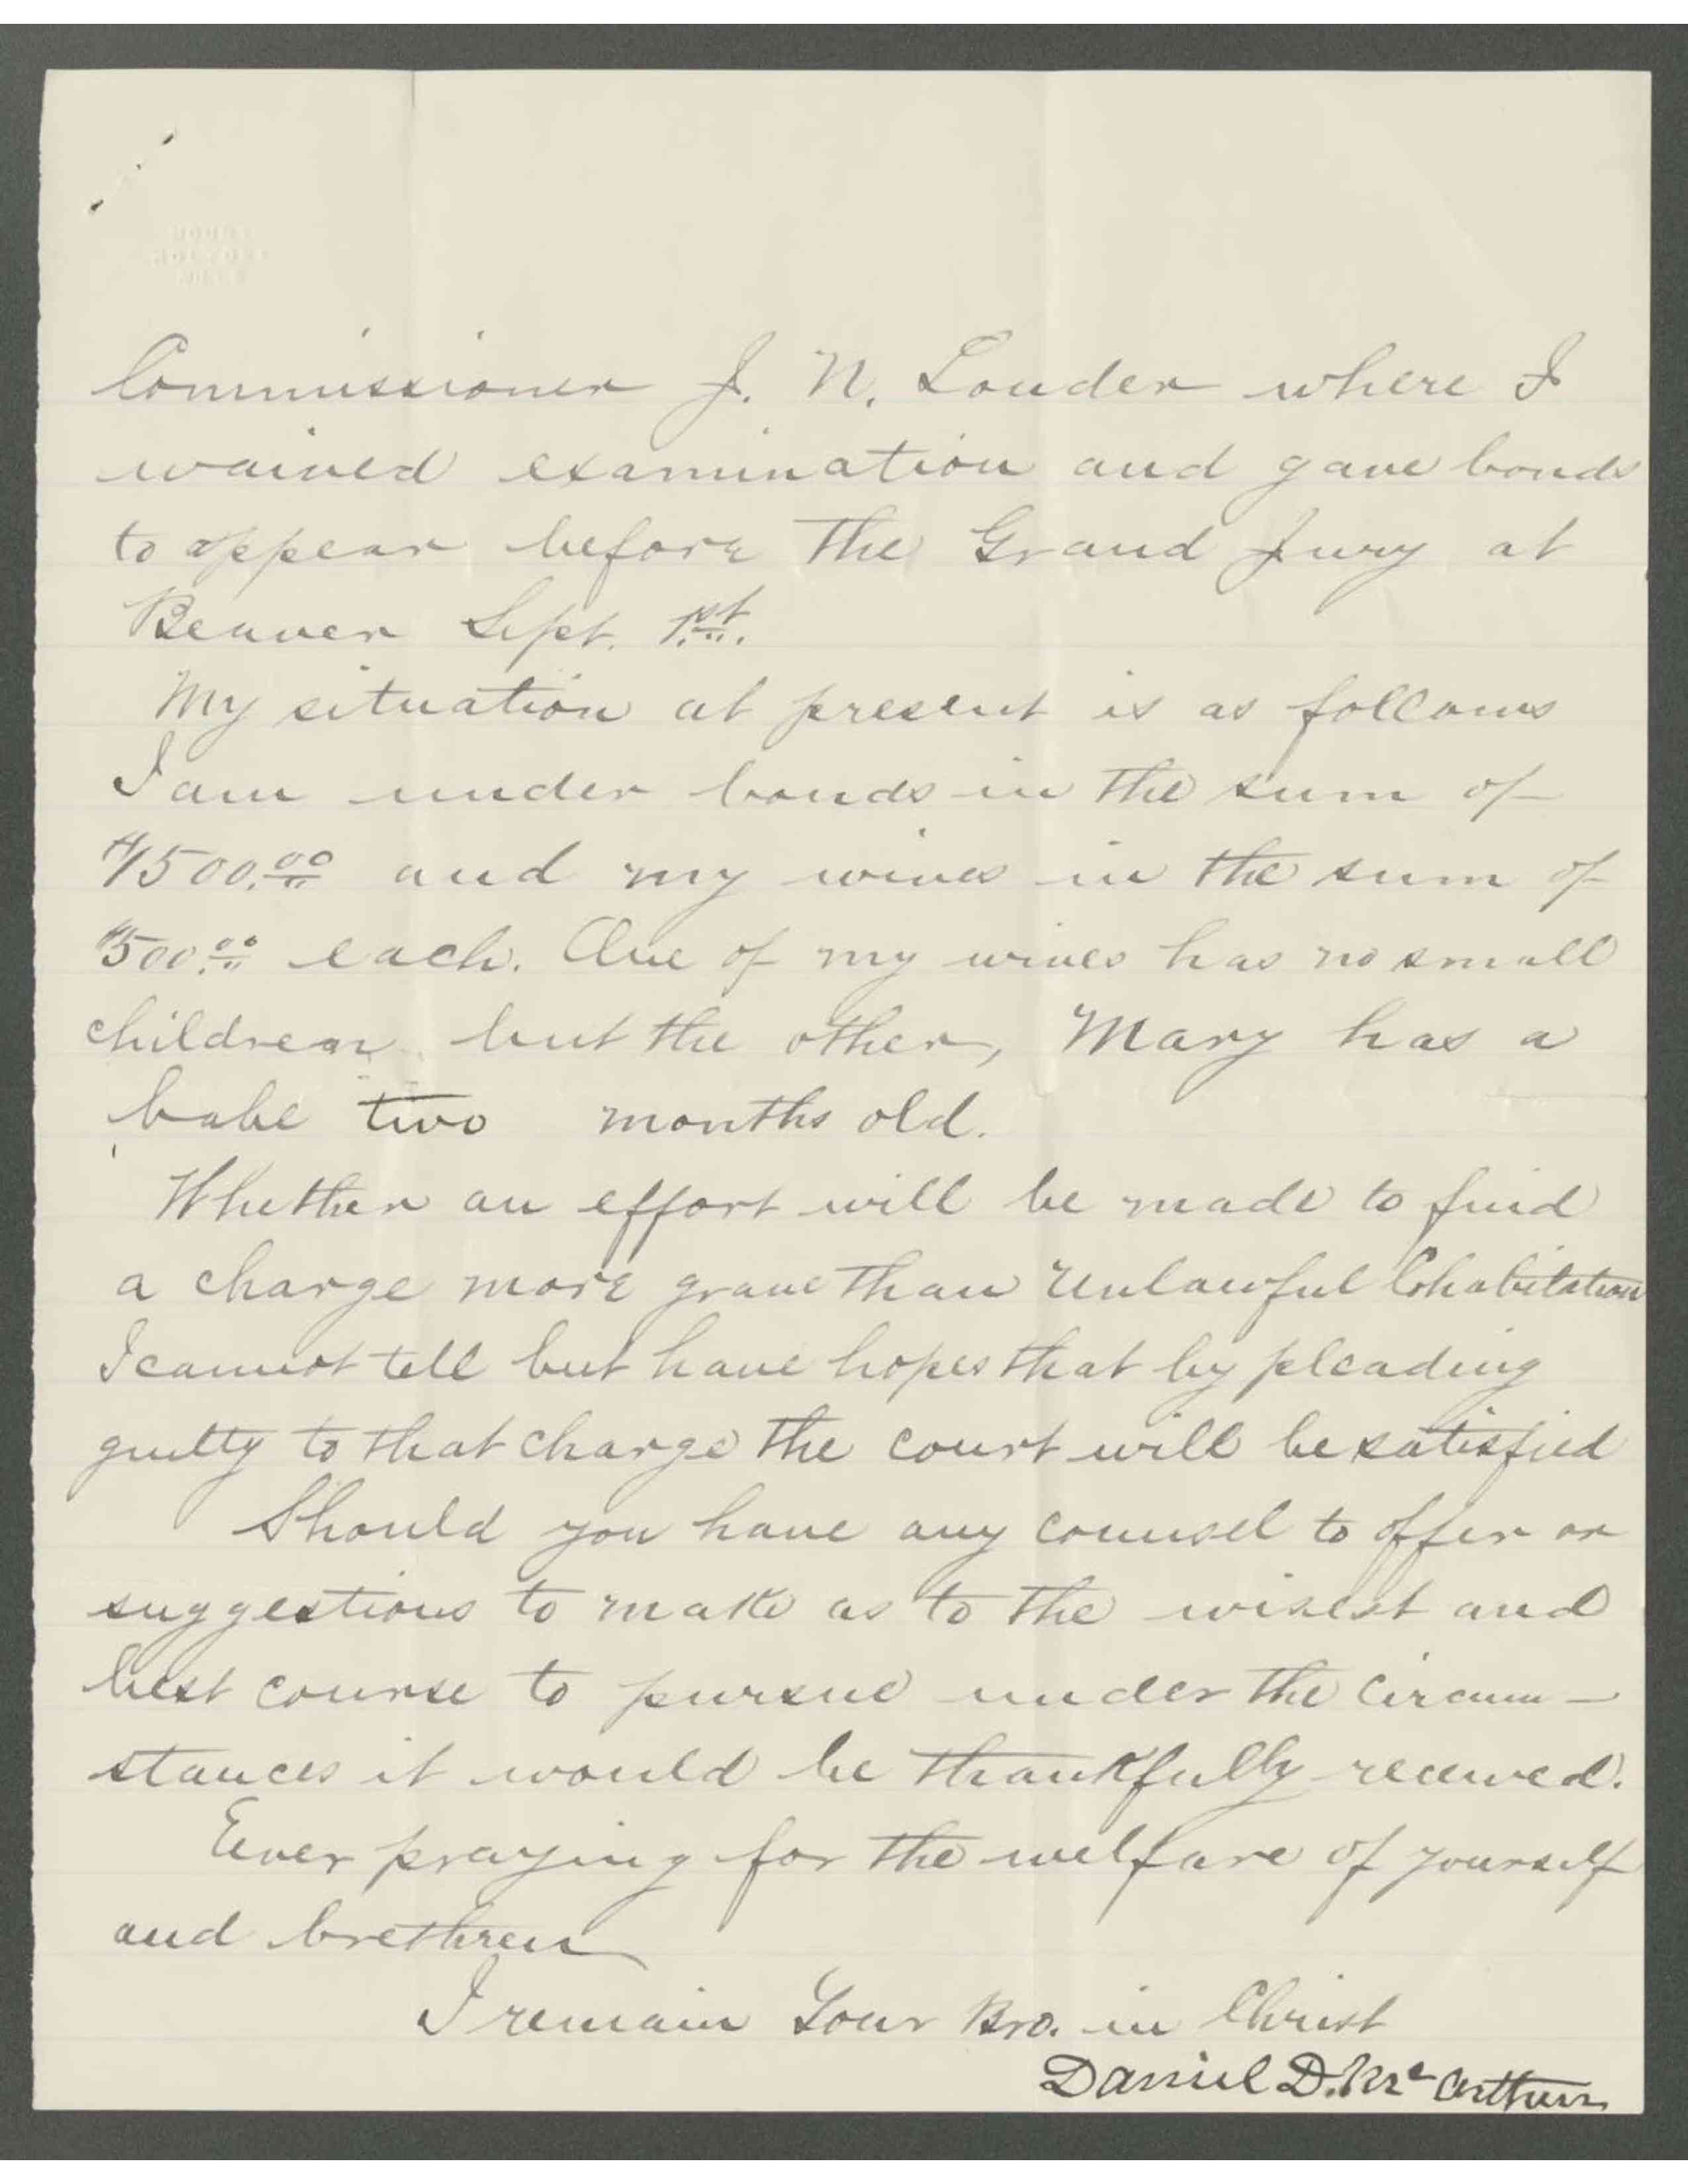 Commissioner J. N. Louder where I
waived examination and gave bonds
to appear before the Grand Jury at
Beaver Sept. 1st.
My situation at present is as follows
I am under bonds in the sum of
$1500.00 and my wives in the sum of
$500.00 each. One of my wives has no small
children but the other, Mary has a
babe two months old.
Whether an effort will be made to find
a charge more grave than Unlawful Cohabitation
I cannot tell but have hopes that by pleading
guilty to that charge the court will be satisfied
Should you have any counsel to offer or
suggestions to make as to the wisest and
best course to pursue under the circum-
stances it would be thankfully received.
Ever praying for the welfare of yourself
and brethren
I remain Your Bro. in Christ
Daniel D. McArthur